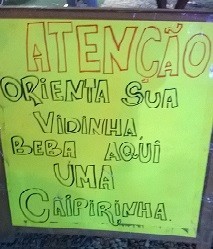 ATENÇÃO
ORIENTA SUA
VIDINHA
BEBA AQUI
UMA
CAIPIRINHA.